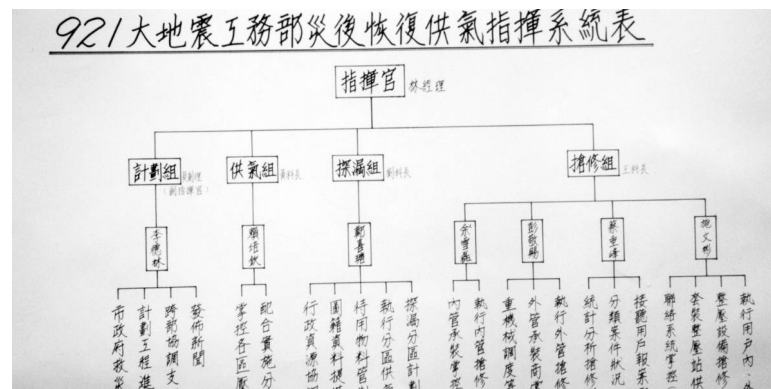 921大地震工務部災後恢復供氣指揮系統表
指揮官
林經理
計劃組
(副指揮官)
供氣組
黃科長
探漏組
劉科長
搶修組
王科長
李德林
賴培欽
余雪龍
彭敬賜
蔡重峰
施文彬
市政府救災
計劃工程進
跨部協調支
發佈新聞
掌控各區壓
配合實施分
行政資源協
圖籍資料提
特用物料管
執行分區供氣
探漏分區計劃
內管承裝掌控
執行內管搶修
重機械調度
外管承裝商
執行外管搶修
統計分析搶修
分類案件狀況
接聽用戶報案
聯絡系統掌控
套裝整壓站供
整壓設備搶修
執行用戶內、外